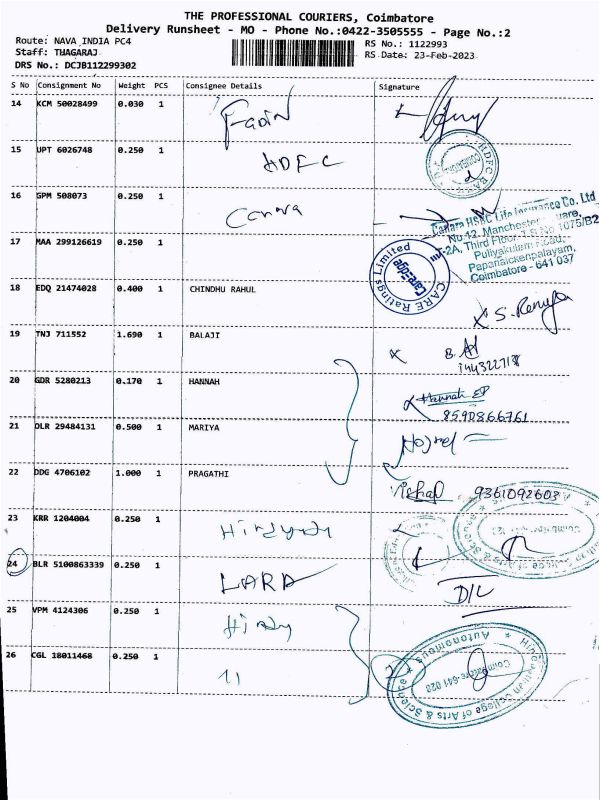 THE PROFESSIONAL COURIERS, Coimbatore
Delivery Runsheet - MO - Phone No.:0422-3505555 - Page No.:2
Route: NAVA INDIA PC4 RS No.: 1122993
Staff: THAGARAJ RS Date: 23-Feb-2023
DRS No.: DCJB112299302
S No Consignment No Weight PCS Consignee Details Signature
14 KCM 50028499 0.030 1
15 UPT 6026748 0.250 1 HDFC
HDFC
COIMBATORE
16 GPM 508073 0.250 1 Canara
Canara HSBC Life Insurance Co. Ltd
No.12, Manchester
-2A, Third Floor, 1075/B2
Puliyakulam Road,
Papanaickenpalayam,
Coimbatore - 641 037
17 MAA 299126619 0.250 1
CARE Ratings Limited
CareEdge
18 EDQ 21474028 0.400 1 CHINDHU RAHUL
S. Renuga
19 TNJ 711552 1.690 1 BALAJI
20 GDR 5280213 0.170 1 HANNAH
Hannah
8590866761
21 DLR 29484131 0.500 1 MARIYA
22 DDG 4706102 1.000 1 PRAGATHI
9361092603
23 KRR 1204004 0.250 1
College of Arts & Science
24 BLR 5100863339 0.250 1 LARA
25 VPM 4124306 0.250 1
26 CGL 18011468 0.250 1 11
Hindusthan College of Arts & Science
Autonomous
Coimbatore-641 028